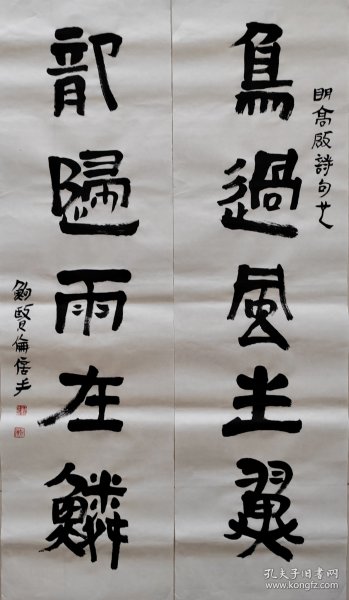 明高啟詩句也
鳥過風生翼
龍歸雨在鱗
賢倫信手
孔夫子旧书网
kongfz.com